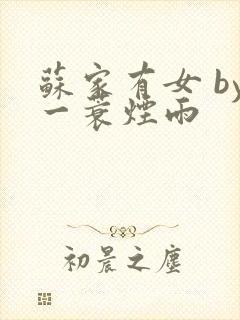 蘇家有女 by
一蓑煙雨
初晨之塵